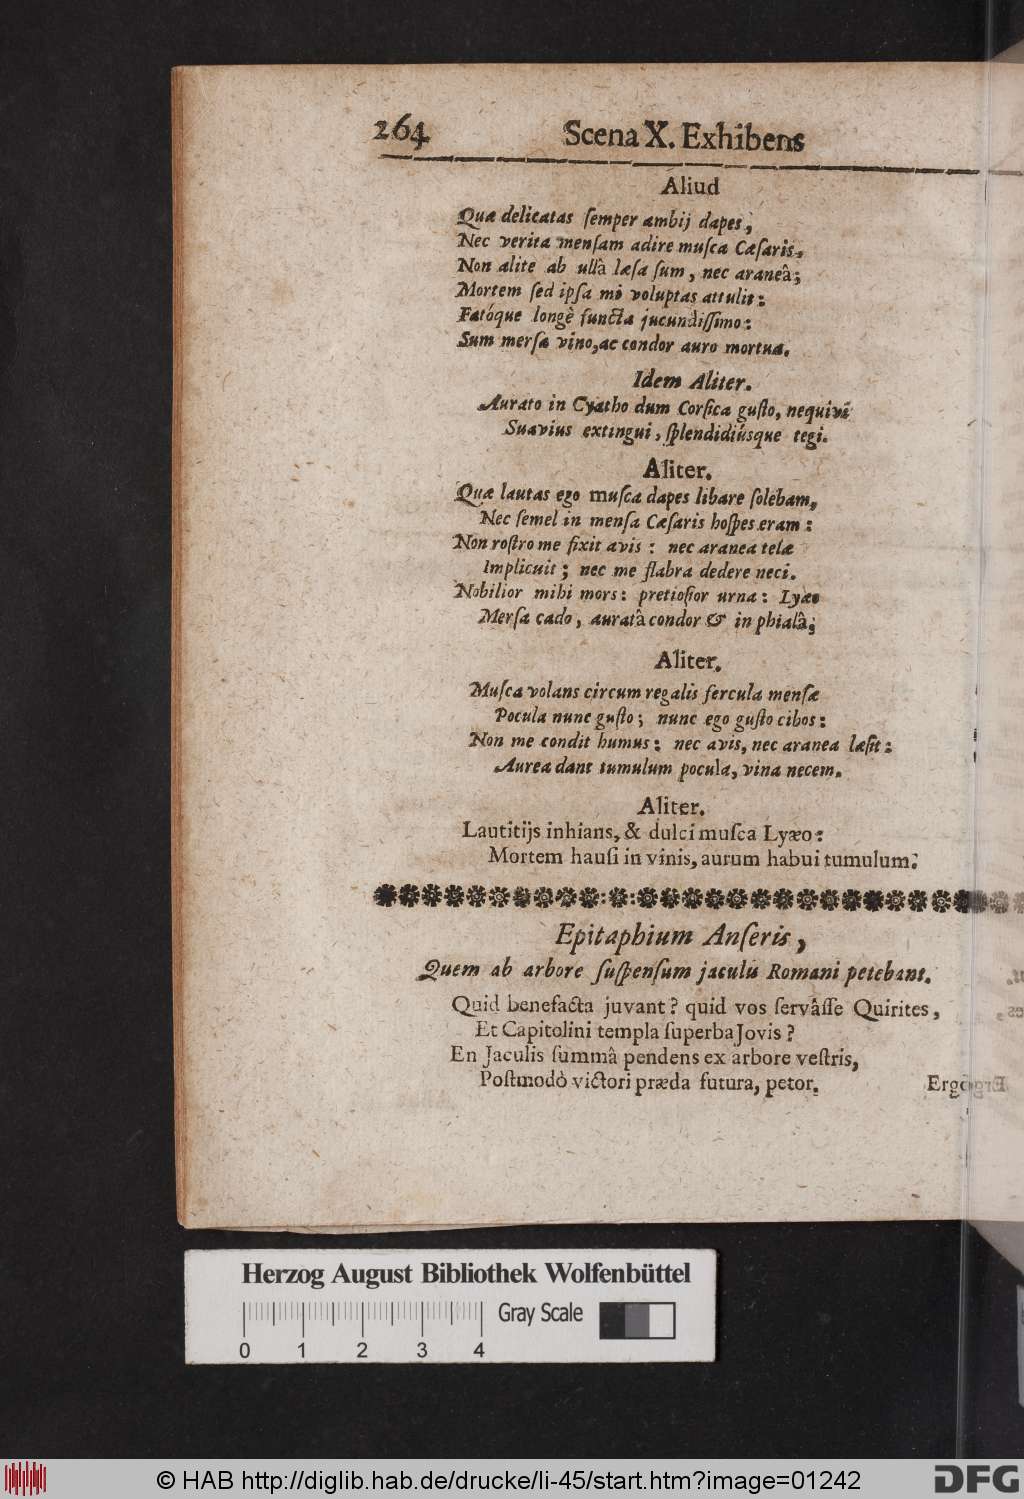 264 Scena X. Exhibens
Aliud
Quæ delicatas ſemper ambij dapes,
Nec verita menſam adire muſca Cæſaris,
Non alite ab ullâ læſa ſum, nec araneâ;
Mortem ſed ipſa mî voluptas attulit:
Fatóque longè functa jucundiſſimo:
Sum merſa vino, ac condor auro mortua.
Idem Aliter.
Aurato in Cyatho dum Corſica guſto, nequivi
Suavius extingui, ſplendidiúsque tegi.
Aliter.
Quæ lautas ego muſca dapes libare ſolebam,
Nec ſemel in menſa Cæſaris hoſpes eram:
Non roſtro me fixit avis: nec aranea telæ
Implicuit; nec me flabra dedere neci.
Nobilior mihi mors: pretioſior urna: Lyæo
Merſa cado, auratâ condor & in phialâ;
Aliter.
Muſca volans circum regalis fercula menſæ
Pocula nunc guſto; nunc ego guſto cibos:
Non me condit humus: nec avis, nec aranea læſit:
Aurea dant tumulum pocula, vina necem.
Aliter.
Lautitijs inhians, & dulci muſca Lyæo:
Mortem hauſi in vinis, aurum habui tumulum.
Epitaphium Anſeris,
Quem ab arbore ſuſpenſum jaculis Romani petebant.
Quid benefacta juvant? quid vos ſervâſſe Quirites,
Et Capitolini templa ſuperba Jovis?
En Jaculis ſummâ pendens ex arbore veſtris,
Poſtmodò victori præda futura, petor.
Ergo
Herzog August Bibliothek Wolfenbüttel
Gray Scale
0 1 2 3 4
© HAB http://diglib.hab.de/drucke/li-45/start.htm?image=01242
DFG